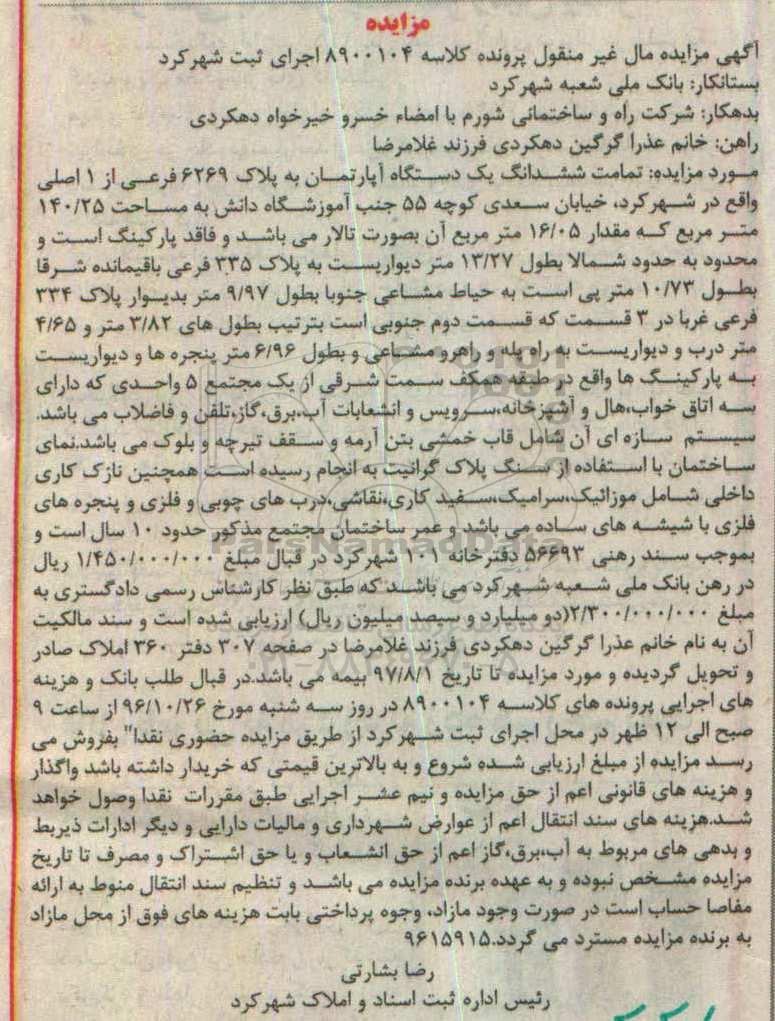 مزایده
آگهی مزایده مال غیر منقول پرونده کلاسه ۸۹۰۰۱۰۴ اجرای ثبت شهرکرد
بستانکار: بانک ملی شعبه شهرکرد
بدهکار: شرکت راه و ساختمانی شورم با امضاء خسرو خیرخواه دهکردی
راهن: خانم عذرا گرگین دهکردی فرزند غلامرضا
مورد مزایده: تمامت ششدانگ یک دستگاه آپارتمان به پلاک ۶۲۶۹ فرعی از ۱ اصلی
واقع در شهرکرد، خیابان سعدی کوچه ۵۵ جنب آموزشگاه دانش به مساحت ۱۴۰/۲۵
متر مربع که مقدار ۱۶/۰۵ متر مربع آن بصورت تالار می باشد و فاقد پارکینگ است و
محدود به حدود شمالا بطول ۱۳/۲۷ متر دیواریست به پلاک ۳۳۵ فرعی باقیمانده شرقا
بطول ۱۰/۷۳ متر پی است به حیاط مشاعی جنوبا بطول ۹/۹۷ متر بدیوار پلاک ۳۳۴
فرعی غربا در ۳ قسمت که قسمت دوم جنوبی است بترتیب بطول های ۳/۸۲ متر و ۴/۶۵
متر درب و دیواریست به راه پله و راهرو مشاعی و بطول ۶/۹۶ متر پنجره ها و دیواریست
به پارکینگ ها واقع در طبقه همکف سمت شرقی از یک مجتمع ۵ واحدی که دارای
سه اتاق خواب،هال و آشپزخانه،سرویس و انشعابات آب،برق،گاز،تلفن و فاضلاب می باشد.
سیستم سازه ای آن شامل قاب خمشی بتن آرمه و سقف تیرچه و بلوک می باشد.نمای
ساختمان با استفاده از سنگ پلاک گرانیت به انجام رسیده است همچنین نازک کاری
داخلی شامل موزائیک،سرامیک،سفید کاری،نقاشی،درب های چوبی و فلزی و پنجره های
فلزی با شیشه های ساده می باشد و عمر ساختمان مجتمع مذکور حدود ۱۰ سال است و
بموجب سند رهنی ۵۶۶۹۳ دفترخانه ۱۰۱ شهرکرد در قبال مبلغ ۱/۴۵۰/۰۰۰/۰۰۰ ریال
در رهن بانک ملی شعبه شهرکرد می باشد که طبق نظر کارشناس رسمی دادگستری به
مبلغ ۲/۳۰۰/۰۰۰/۰۰۰(دو میلیارد و سیصد میلیون ریال) ارزیابی شده است و سند مالکیت
آن به نام خانم عذرا گرگین دهکردی فرزند غلامرضا در صفحه ۳۰۷ دفتر ۳۶۰ املاک صادر
و تحویل گردیده و مورد مزایده تا تاریخ ۹۷/۸/۱ بیمه می باشد.در قبال طلب بانک و هزینه
های اجرایی پرونده های کلاسه ۸۹۰۰۱۰۴ در روز سه شنبه مورخ ۹۶/۱۰/۲۶ از ساعت ۹
صبح الی ۱۲ ظهر در محل اجرای ثبت شهرکرد از طریق مزایده حضوری نقدا" بفروش می
رسد مزایده از مبلغ ارزیابی شده شروع و به بالاترین قیمتی که خریدار داشته باشد واگذار
و هزینه های قانونی اعم از حق مزایده و نیم عشر اجرایی طبق مقررات نقدا وصول خواهد
شد.هزینه های سند انتقال اعم از عوارض شهرداری و مالیات دارایی و دیگر ادارات ذیربط
و بدهی های مربوط به آب،برق،گاز اعم از حق انشعاب و یا حق اشتراک و مصرف تا تاریخ
مزایده مشخص نبوده و به عهده برنده مزایده می باشد و تنظیم سند انتقال منوط به ارائه
مفاصا حساب است در صورت وجود مازاد، وجوه پرداختی بابت هزینه های فوق از محل مازاد
به برنده مزایده مسترد می گردد.۹۶۱۵۹۱۵
رضا بشارتی
رئیس اداره ثبت اسناد و املاک شهرکرد
ParsNamadData